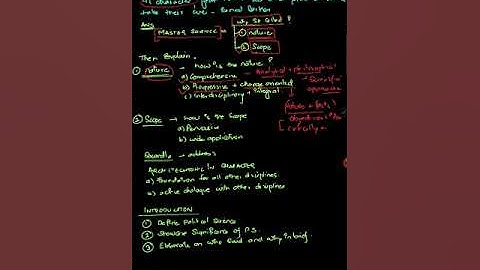 its character, 
take their cue - Ernest Barker
Ans
MASTER SCIENCE
why so called?
① nature
② Scope
Then Explain.
① Nature → how is the nature?
a) Comprehensive - Analytical + philosophical
b) Progressive + change oriented
c) interdisciplinary + integral
Scientific
approaches
Values + facts
② Scope → how is the scope
a) Pervasive
b) wide application
→ address
ARCHITECTONIC IN CHARACTER
a) Foundation for all other disciplines.
b) active dialogue with other disciplines
INTRODUCTION
① Define Political Science
② Showcase Significance of P.S.
③ Elaborate on who said and why in brief.